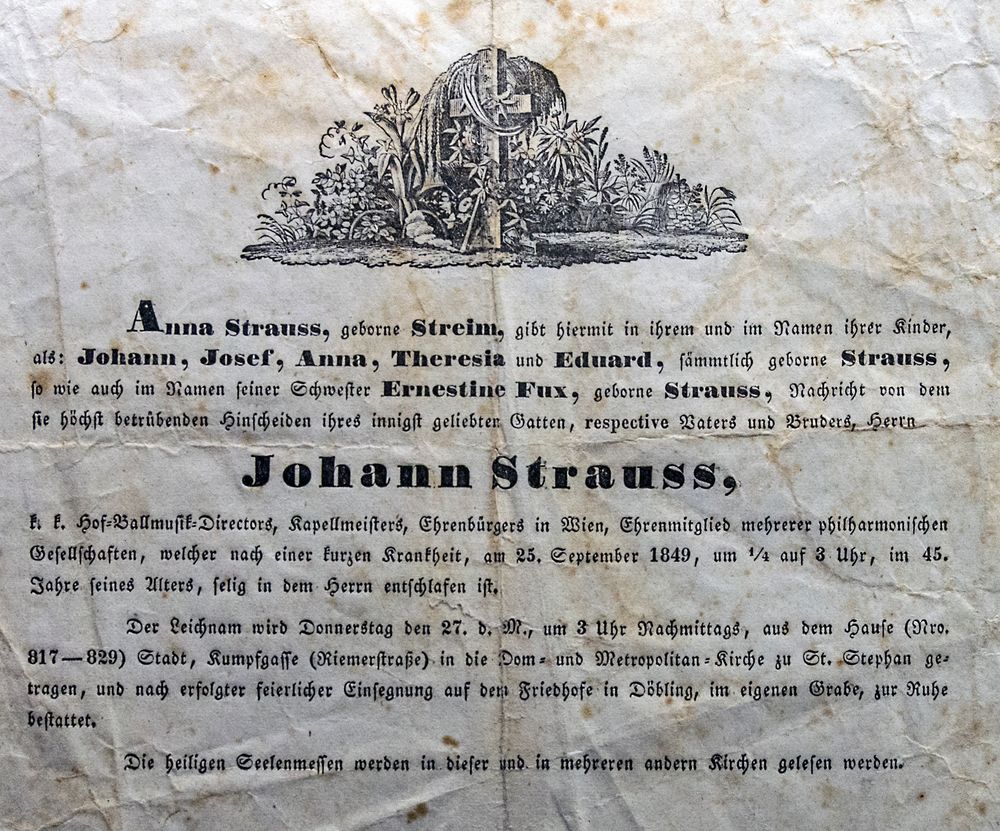 Anna Strauss, geborne Streim, gibt hiermit in ihrem und im Namen ihrer Kinder,
als: Johann, Josef, Anna, Theresia und Eduard, sämmtlich geborne Strauss,
so wie auch im Namen seiner Schwester Ernestine Fux, geborne Strauss, Nachricht von dem
sie höchst betrübenden Hinscheiden ihres innigst geliebten Gatten, respective Vaters und Bruders, Herrn
Johann Strauss,
k. k. Hof-Ballmusik-Directors, Kapellmeisters, Ehrenbürgers in Wien, Ehrenmitglied mehrerer philharmonischen
Gesellschaften, welcher nach einer kurzen Krankheit, am 25. September 1849, um 1/4 auf 3 Uhr, im 45.
Jahre seines Alters, selig in dem Herrn entschlafen ist.
Der Leichnam wird Donnerstag den 27. d. M., um 3 Uhr Nachmittags, aus dem Hause (Nro.
817—829) Stadt, Kumpfgasse (Riemerstraße) in die Dom- und Metropolitan-Kirche zu St. Stephan ge-
tragen, und nach erfolgter feierlicher Einsegnung auf dem Friedhofe in Döbling, im eigenen Grabe, zur Ruhe
bestattet.
Die heiligen Seelenmessen werden in dieser und in mehreren andern Kirchen gelesen werden.